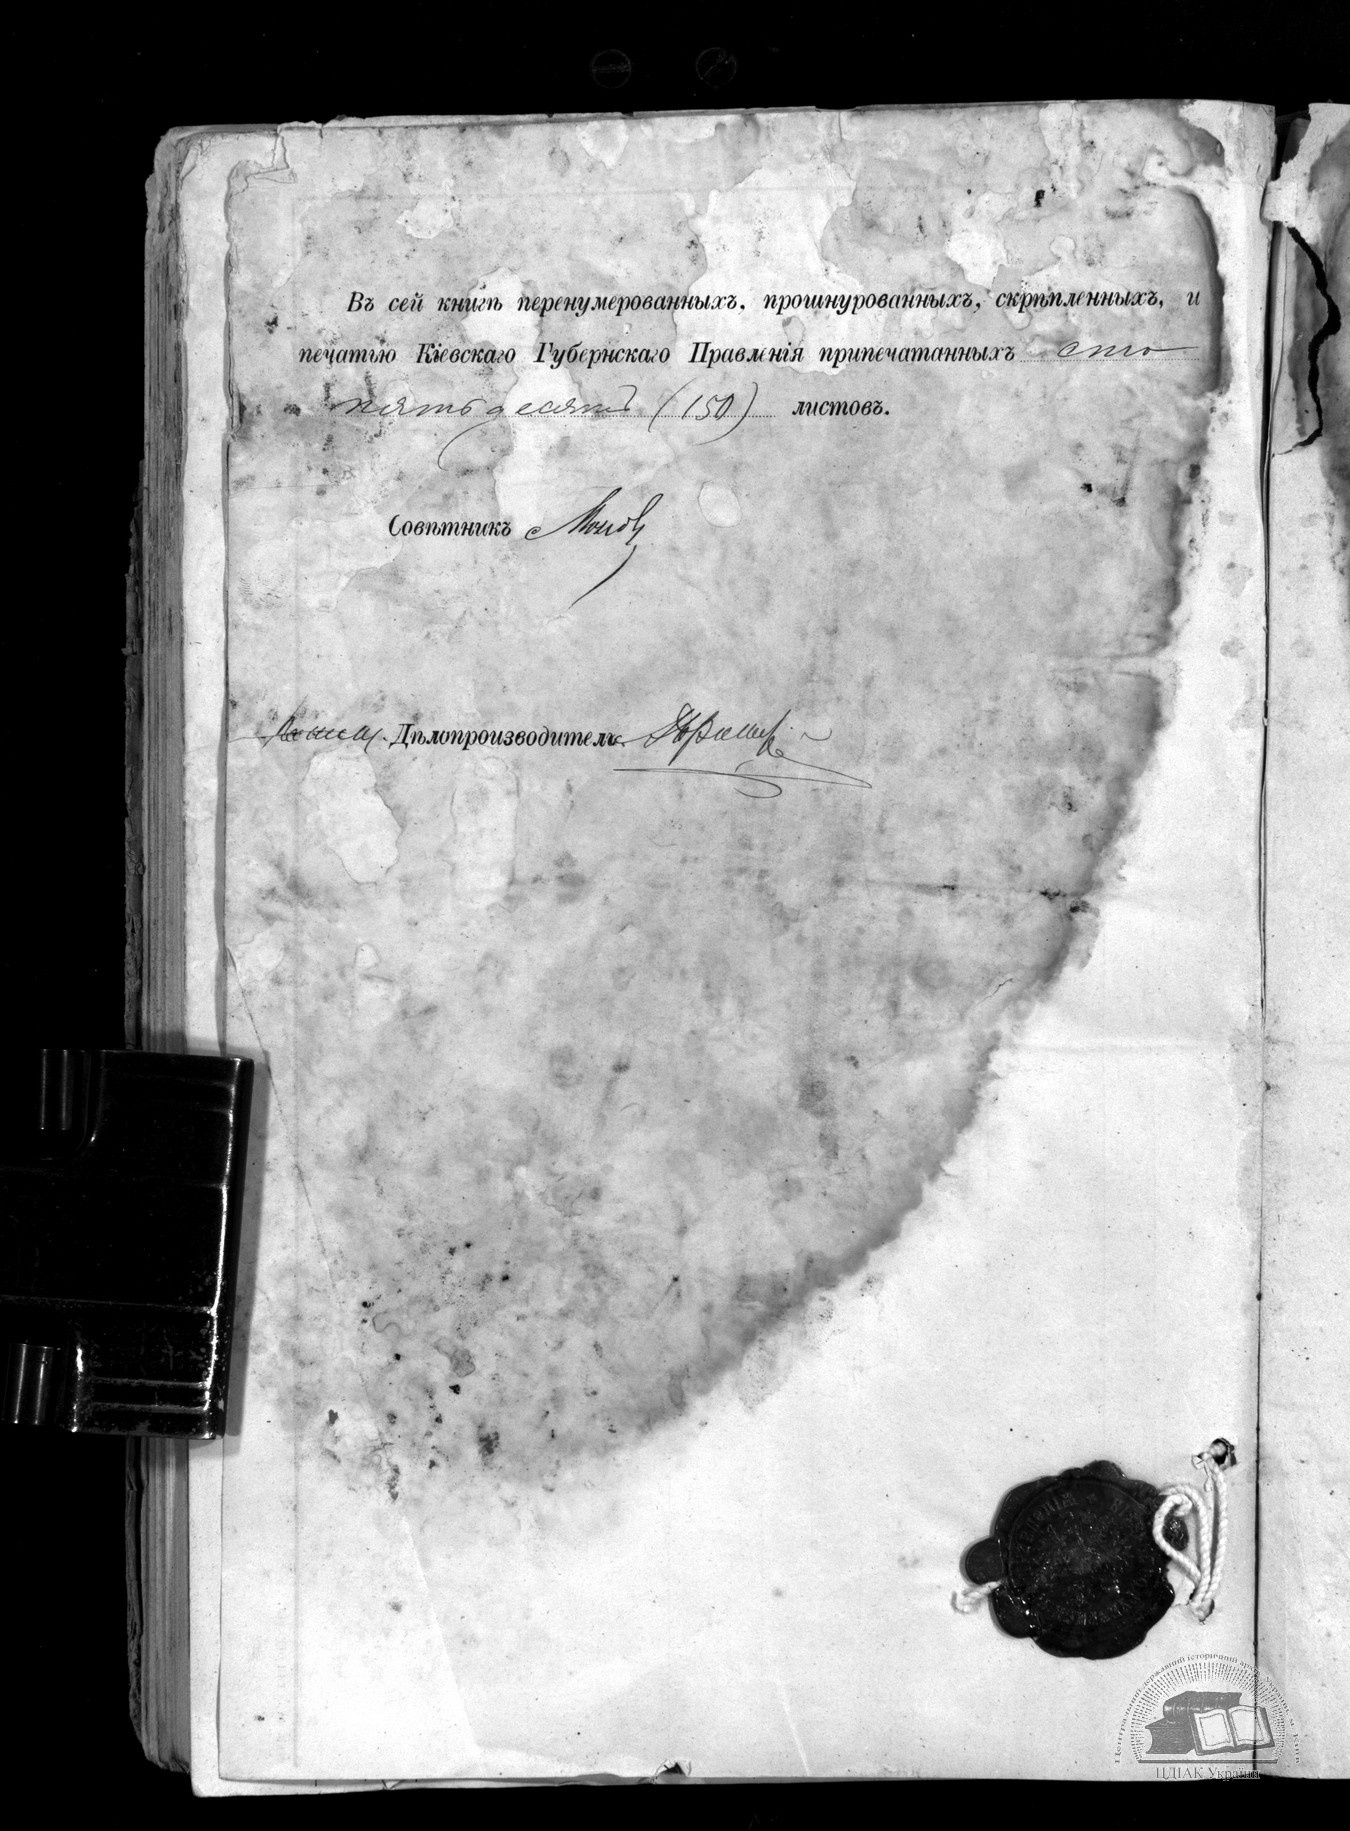 Въ сей книгѣ перенумерованныхъ, прошнурованныхъ, скрѣпленныхъ, и
печатью Кіевскаго Губернскаго Правленія припечатанныхъ сто
пятьдесятъ (150) листовъ.
Совѣтникъ
Дѣлопроизводитель
Центральний державний історичний архів України, м. Київ
ЦДІАК України